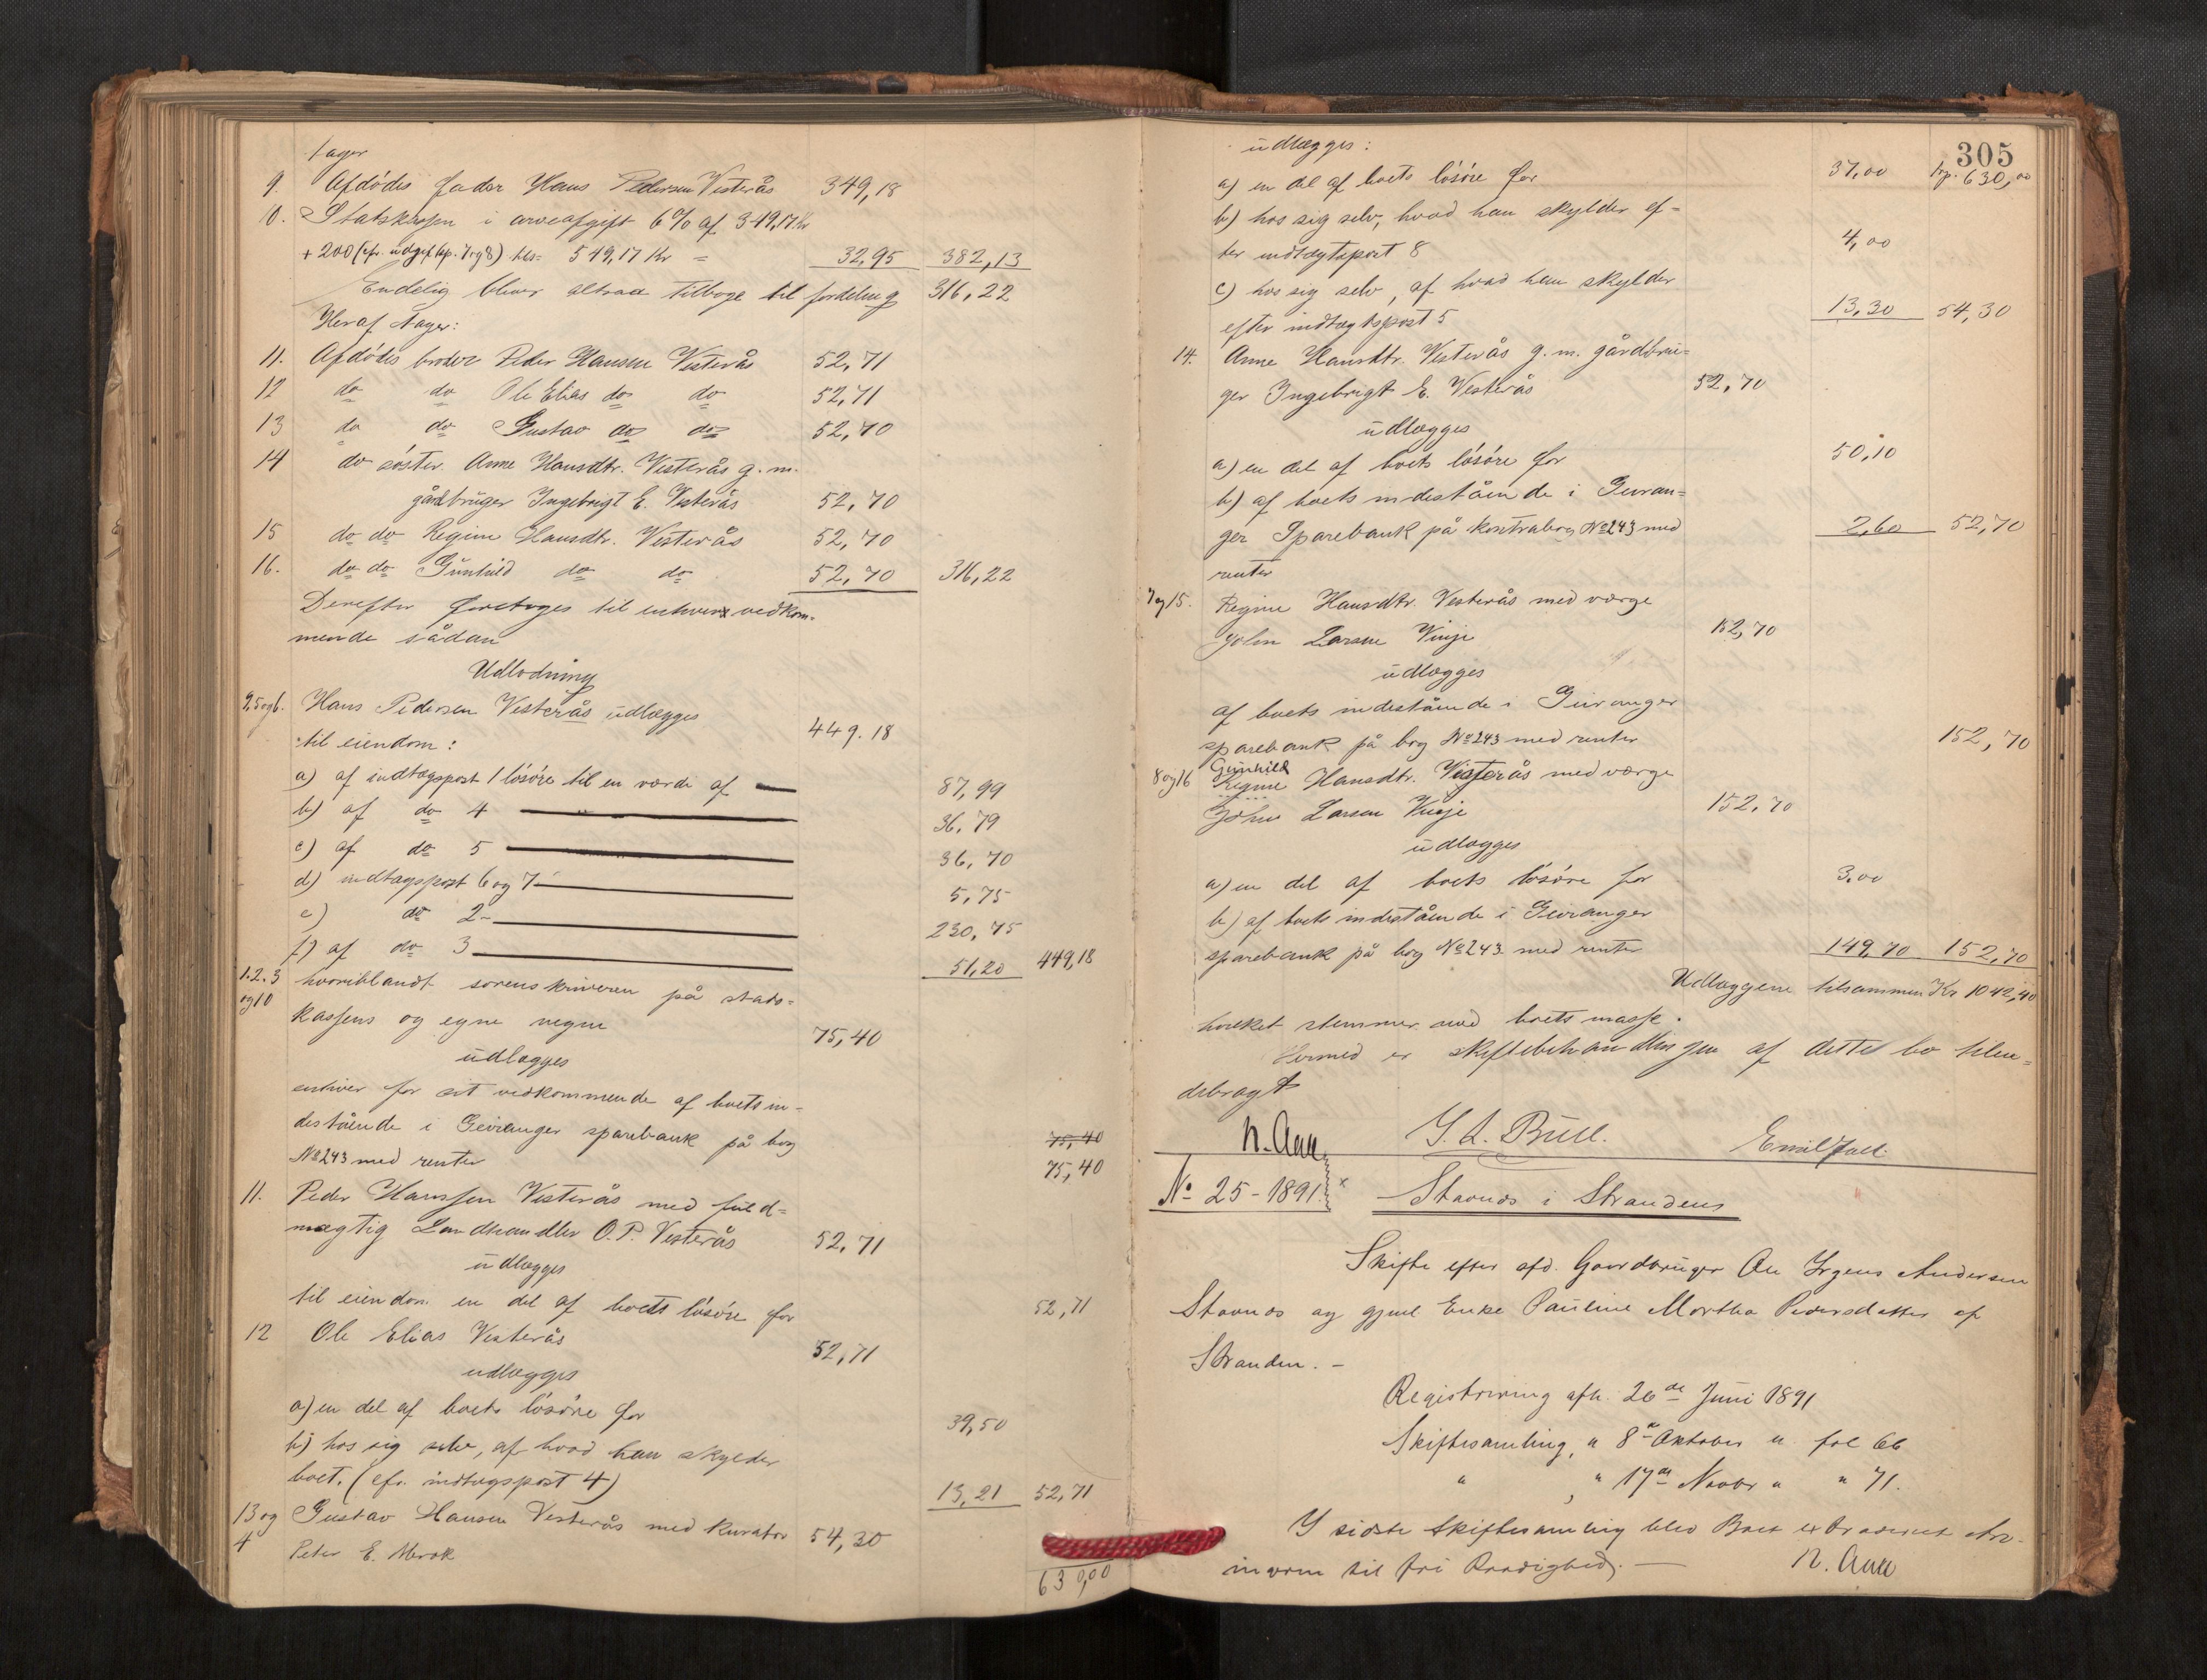 tager
9. Afdødes fader Hans Pedersen Vesterås 349,18
10. Statskassen i arveafgift 6% af 349,17 Kr
+ 200 (cfr. udgiftsp. 7 og 8) tils= 549,17 Kr = 32,95 382,13
Endelig bliver altsaa tilbage til fordeling 316,22
Heraf tager:
11. Afdødes broder Peder Hansen Vesterås 52,71
12 do do Ole Elias do do 52,71
13 do do Gustav do do 52,70
14 do søster Anne Hansdtr. Vesterås g. m.
gårdbruger Ingebrigt E. Vesterås 52,70
15 do do Regine Hansdtr. Vesterås 52,70
16. do do Gunhild do do 52,70 316,22
Derefter foretages til enhver vedkom=
mende sådan
Udlodning
9,5 og 6. Hans Pedersen Vesterås udlægges
til eiendom: 449.18
a) af indtægspost 1 løsøre til en værdi af 87,99
b) af do 4 36,79
c) af do 5 36,70
d) indtægspost 6 og 7 5,75
e) do 2 230,75
f) af do 3 51,20 449,18
1.2.3 hvoriblandt sorenskriveren på stats=
og 10 kassens og egne vegne 75,40
udlægges
enhver for sit vedkommende af boets in=
destående i Geiranger sparebank på bog 75,40
No 243 med renter 75,40
11. Peder Hanssen Vesterås med fuld=
mægtig Landhandler O. P. Vesterås 52,71
udlægges
til eiendom en del af boets løsøre for 52,71
12 Ole Elias Vesterås 52,71
udlægges
a) en del af boets løsøre for 39,50
b) hos sig selv, af hvad han skylder
boet. (cfr. indtægspost 4) 13,21 52,71
13 og Gustav Hansen Vesterås med kurator 54,30
4 Peter E. Merok
630,00
305
udlægges: Trp. 630,00
a) en del af boets løsøre for 37,00
b) hos sig selv, hvad han skylder ef=
ter indtægtspost 8 4,00
c) hos sig selv, af hvad han skylder
efter indtægtspost 5 13,30 54,30
14. Anne Hansdtr. Vesterås g. m. gårdbru=
ger Ingebrigt E. Vesterås 52,70
udlægges
a) en del af boets løsøre for 50,10
b) af boets indestående i Geiran=
ger Sparebank på kontrabog No 243 med 2,60 52,70
renter
7 og 15. Regine Hansdtr. Vesterås med værge
John Larsen Vinje 152,70
udlægges
af boets indestående i Geiranger
sparebank på bog No 243 med renter 152,70
Gunhild
8 og 16 Regine Hansdtr. Vesterås med værge
John Larsen Vinje 152,70
udlægges
a) en del af boets løsøre for 3,00
b) af boets indestående i Geiranger
sparebank på bog No 243 med renter 149,70 152,70
Udlæggene tilsammen Kr 1042,40
hvilket stemmer med boets masse.
Hermed er skiftebehandlingen af dette bo tilen=
debragt
N. Aae J. L. Bull. Emil Juell
No 25 - 1891. x Stavnes i Strandens
Skifte efter afd. Gaardbruger Ole Jrgens Andersen
Stavnes og gjenl Enke Pauline Martha Pedersdatter af
Stranden. -
Registrering afh. 26de Juni 1891
Skiftesamling, " 8de Oktober " fol 66
" , " 17de Novbr " " 71.
I sidste Skiftesamling blev Boet extraderet Ar-
vingerne til fri Raadighed. — N. Aae